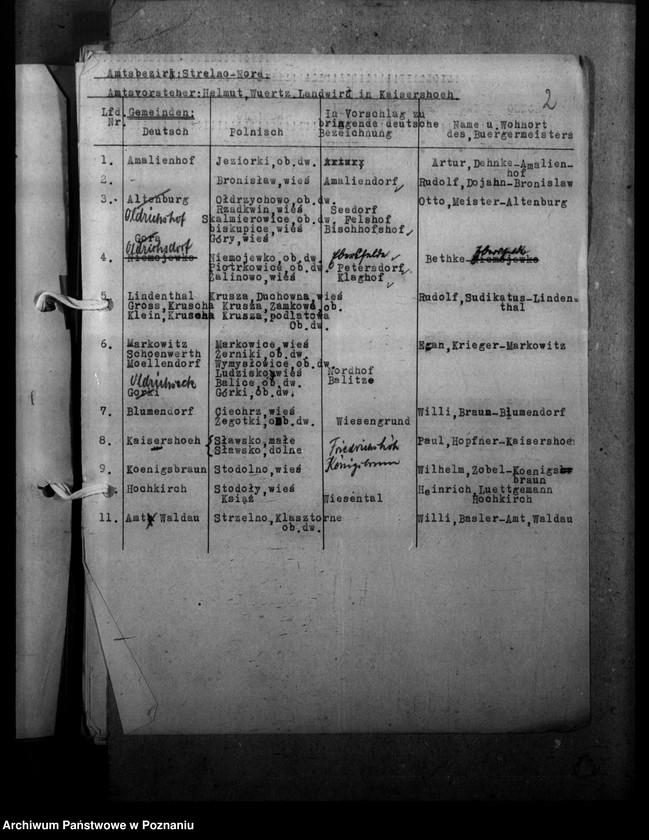 Amtsbezirk: Strelno-Nord.
Amtsvorsteher: Helmut, Wuertz, Landwirt in Kaisershoeh
2
Lfd. Nr. Gemeinden: Deutsch Polnisch In Vorschlag zu bringende deutsche Bezeichnung Name u. Wohnort des, Buergermeisters
1. Amalienhof Jeziorki, ob.dw. Artur, Dehnke-Amalienhof
2. - Bronisław, wieś Amaliendorf Rudolf, Dojahn-Bronislaw
3. Altenburg Ołdrzychowo, ob.dw. Otto, Meister-Altenburg
Rzadkwin, wieś Seedorf
Skalmierowice, ob.dw. Felshof
biskupice, wieś Bischhofshof
Gora Góry, wieś
4. Niemojewko Niemojewko, ob.dw. Bethke-Niemojewko
Piotrkowice, ob.dw. Petersdorf
Żalinowo, wieś Klaghof
5. Lindenthal Krusza, Duchowna, wieś Rudolf, Sudikatus-Lindenthal
Gross, Kruscha Krusza, Zamkowa, ob.
Klein, Kruscha Krusza, podlatowa
Ob.dw.
6. Markowitz Markowice, wieś Egan, Krieger-Markowitz
Schoenwerth Żerniki, ob.dw.
Moellendorf Wymysłowice, ob.dw.
Ludzisko, wieś Nordhof
Balice, ob.dw. Balitze
Gorki Górki, ob.dw.
7. Blumendorf Ciechrz, wieś Willi, Braun-Blumendorf
Żegotki, ob.dw. Wiesengrund
8. Kaisershoeh Sławsko, małe Friedrichshöh Paul, Hopfner-Kaisershoeh
Sławsko, dolne
9. Koenigsbraun Stodolno, wieś Königsbrunn Wilhelm, Zobel-Koenigsbraun
Hochkirch Stodoły, wieś Heinrich, Luettgemann
Książ Wiesental Hochkirch
11. Amt, Waldau Strzelno, Klasztorne Willi, Basler-Amt, Waldau
ob.dw.
Archiwum Państwowe w Poznaniu